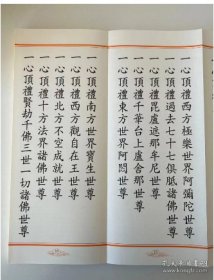 一心頂禮西方極樂世界阿彌陀世尊
一心頂禮過去七十七俱胝諸佛世尊
一心頂禮毘盧遮那牟尼世尊
一心頂禮千華台上盧舍那世尊
一心頂禮東方世界阿閦世尊
一心頂禮南方世界寶生世尊
一心頂禮西方觀自在王世尊
一心頂禮北方不空成就世尊
一心頂禮十方法界諸佛世尊
一心頂禮賢劫千佛三世一切諸佛世尊